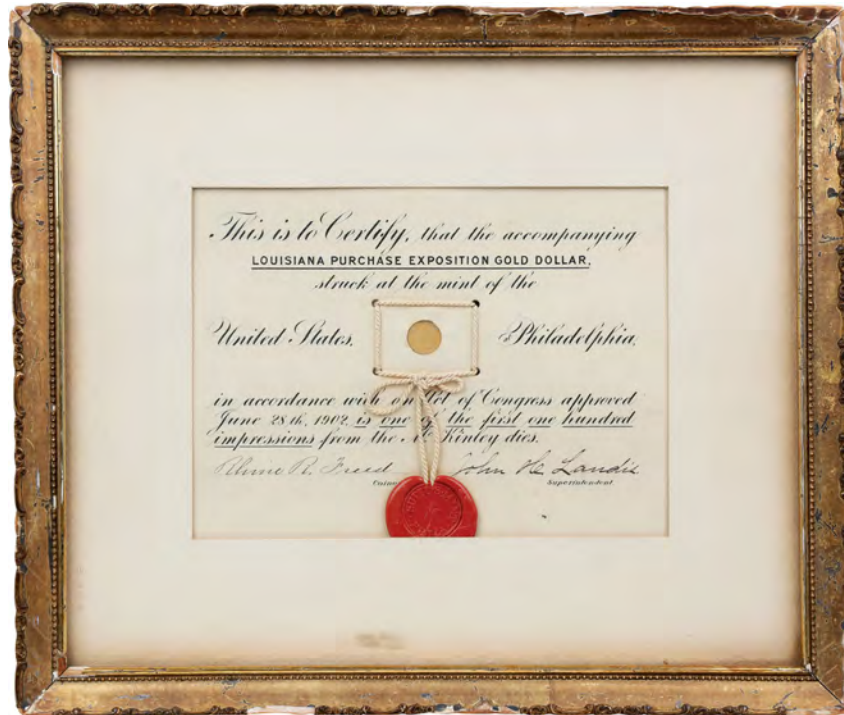 This is to Certify, that the accompanying
LOUISIANA PURCHASE EXPOSITION GOLD DOLLAR,
struck at the mint of the
United States, Philadelphia,
in accordance with an Act of Congress approved
June 28th, 1902, is one of the first one hundred
impressions from the McKinley dies.
Rhine R. Freed John H. Landis
Coiner Superintendent